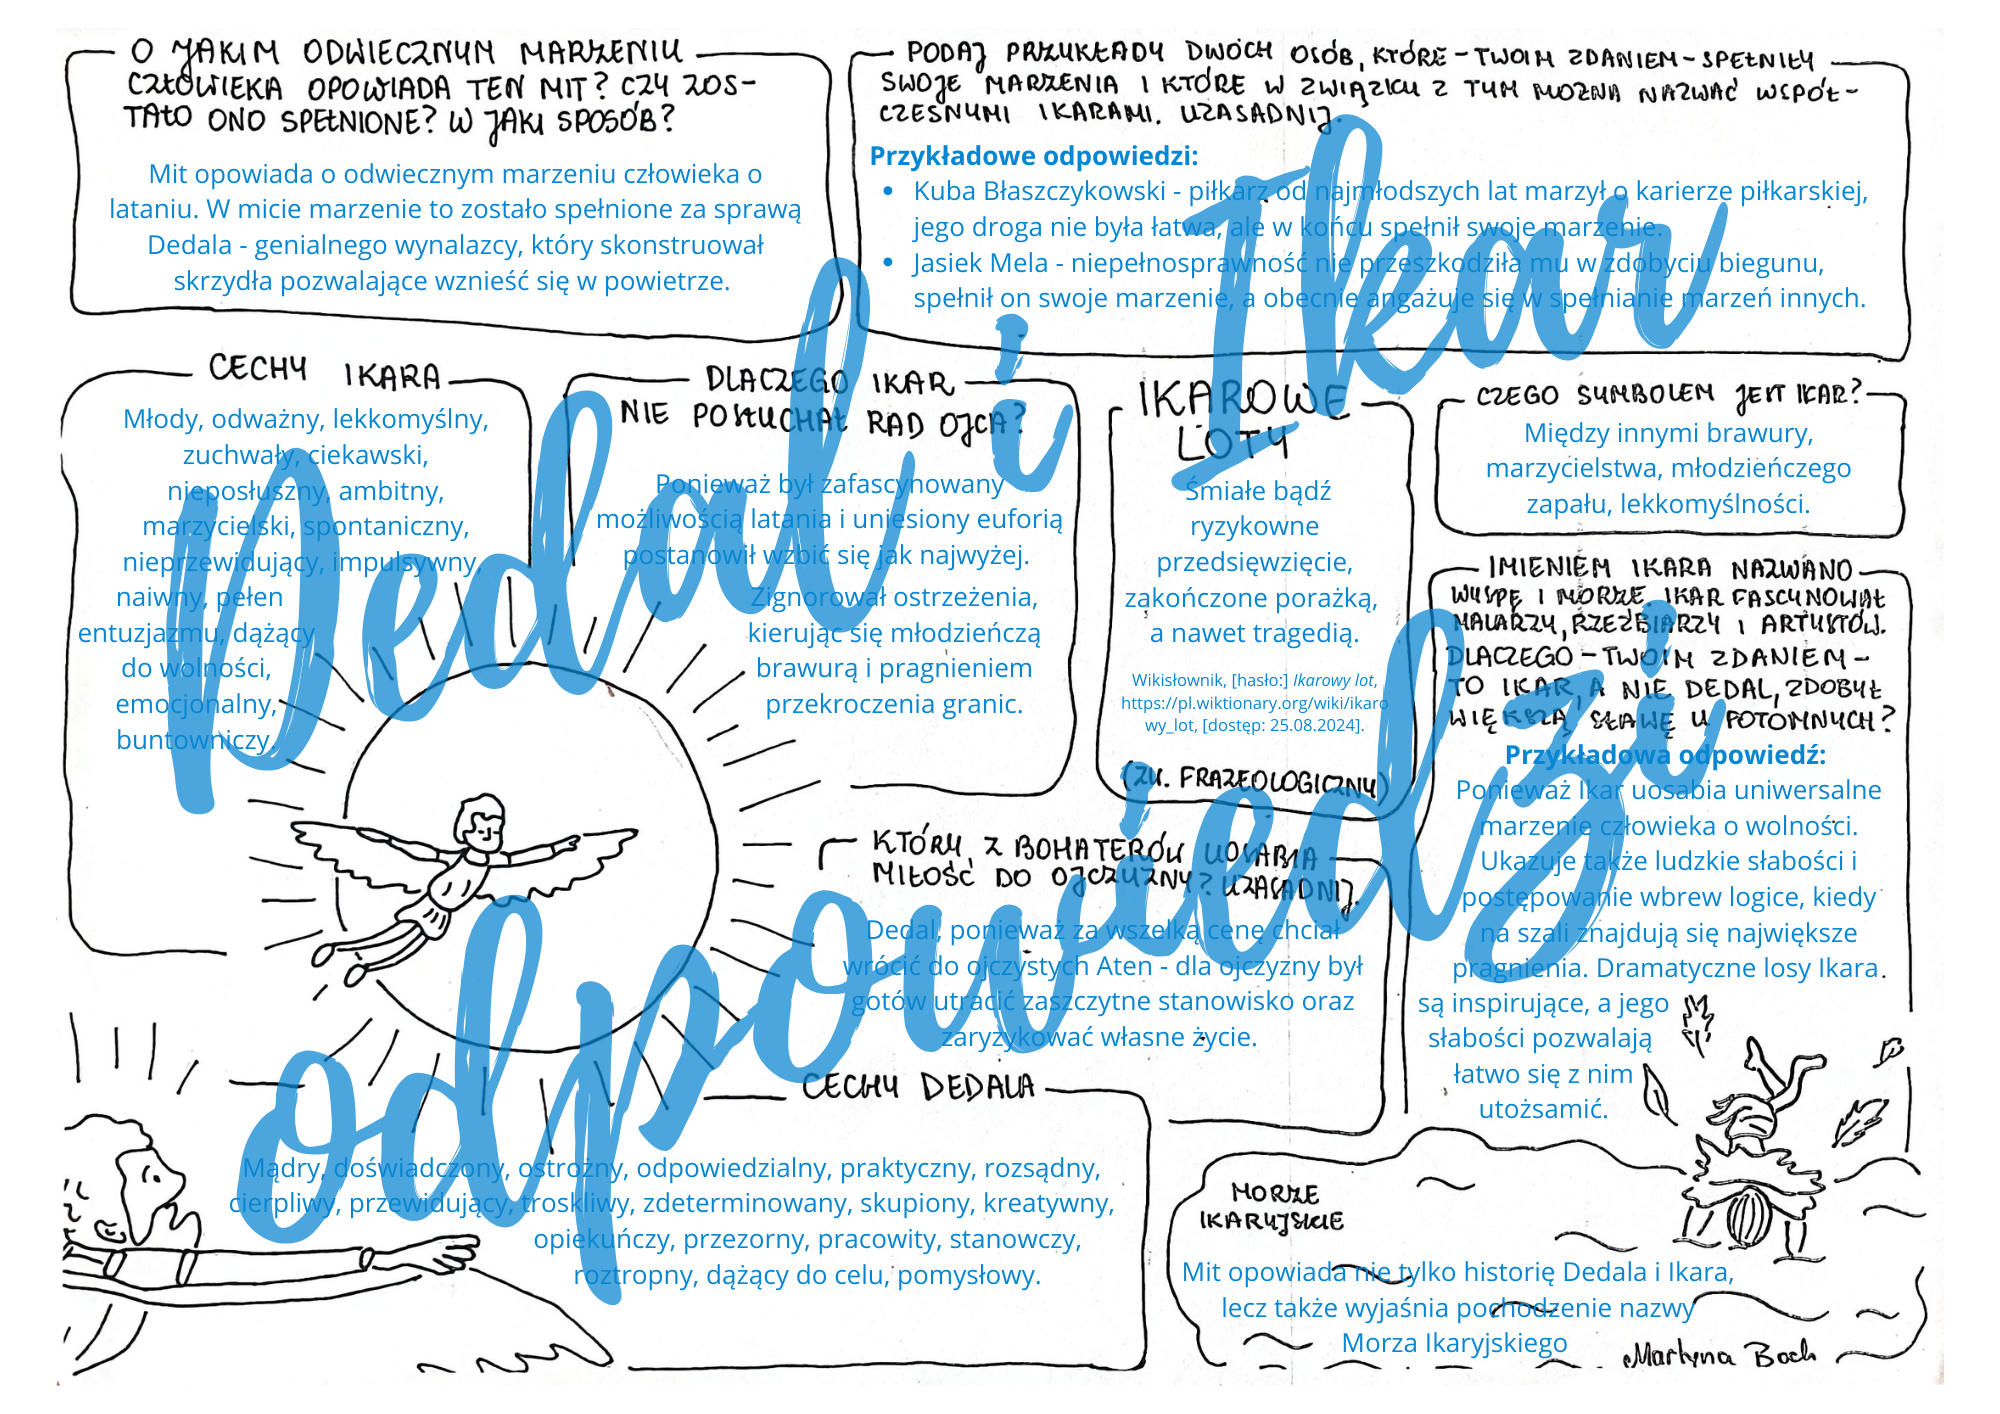 O JAKIM ODWIECZNYM MARZENIU
CZŁOWIEKA OPOWIADA TEN MIT? CZY ZOS-
TAŁO ONO SPEŁNIONE? W JAKI SPOSÓB?
Mit opowiada o odwiecznym marzeniu człowieka o
lataniu. W micie marzenie to zostało spełnione za sprawą
Dedala - genialnego wynalazcy, który skonstruował
skrzydła pozwalające wznieść się w powietrze.
PODAJ PRZYKŁADY DWÓCH OSÓB, KTÓRE - TWOIM ZDANIEM - SPEŁNIŁY
SWOJE MARZENIA I KTÓRE W ZWIĄZKU Z TYM MOŻNA NAZWAĆ WSPÓŁ-
CZESNYMI IKARAMI. UZASADNIJ.
Przykładowe odpowiedzi:
• Kuba Błaszczykowski - piłkarz od najmłodszych lat marzył o karierze piłkarskiej,
jego droga nie była łatwa, ale w końcu spełnił swoje marzenie.
• Jasiek Mela - niepełnosprawność nie przeszkodziła mu w zdobyciu biegunu,
spełnił on swoje marzenie, a obecnie angażuje się w spełnianie marzeń innych.
CECHY IKARA
Młody, odważny, lekkomyślny,
zuchwały, ciekawski,
nieposłuszny, ambitny,
marzycielski, spontaniczny,
nieprzewidujący, impulsywny,
naiwny, pełen
entuzjazmu, dążący
do wolności,
emocjonalny,
buntowniczy.
DLACZEGO IKAR
NIE POSŁUCHAŁ RAD OJCA?
Ponieważ był zafascynowany
możliwością latania i uniesiony euforią
postanowił wzbić się jak najwyżej.
Zignorował ostrzeżenia,
kierując się młodzieńczą
brawurą i pragnieniem
przekroczenia granic.
IKAROWE
LOTY
Śmiałe bądź
ryzykowne
przedsięwzięcie,
zakończone porażką,
a nawet tragedią.
Wikisłownik, [hasło:] Ikarowy lot,
https://pl.wiktionary.org/wiki/ikaro
wy_lot, [dostęp: 25.08.2024].
(ZW. FRAZEOLOGICZNY)
CZEGO SYMBOLEM JEST IKAR?
Między innymi brawury,
marzycielstwa, młodzieńczego
zapału, lekkomyślności.
IMIENIEM IKARA NAZWANO
WYSPĘ I MORZE. IKAR FASCYNOWAŁ
MALARZY, RZEŹBIARZY I ARTYSTÓW.
DLACZEGO - TWOIM ZDANIEM -
TO IKAR, A NIE DEDAL, ZDOBYŁ
WIĘKSZĄ SŁAWĘ U POTOMNYCH?
Przykładowa odpowiedź:
Ponieważ Ikar uosabia uniwersalne
marzenie człowieka o wolności.
Ukazuje także ludzkie słabości i
postępowanie wbrew logice, kiedy
na szali znajdują się największe
pragnienia. Dramatyczne losy Ikara
są inspirujące, a jego
słabości pozwalają
łatwo się z nim
utożsamić.
KTÓRY Z BOHATERÓW UOSABIA
MIŁOŚĆ DO OJCZYZNY? UZASADNIJ.
Dedal, ponieważ za wszelką cenę chciał
wrócić do ojczystych Aten - dla ojczyzny był
gotów utracić zaszczytne stanowisko oraz
zaryzykować własne życie.
CECHY DEDALA
Mądry, doświadczony, ostrożny, odpowiedzialny, praktyczny, rozsądny,
cierpliwy, przewidujący, troskliwy, zdeterminowany, skupiony, kreatywny,
opiekuńczy, przezorny, pracowity, stanowczy,
roztropny, dążący do celu, pomysłowy.
MORZE
IKARYJSKIE
Mit opowiada nie tylko historię Dedala i Ikara,
lecz także wyjaśnia pochodzenie nazwy
Morza Ikaryjskiego
Martyna Boch
Dedal i Ikar
odpowiedzi